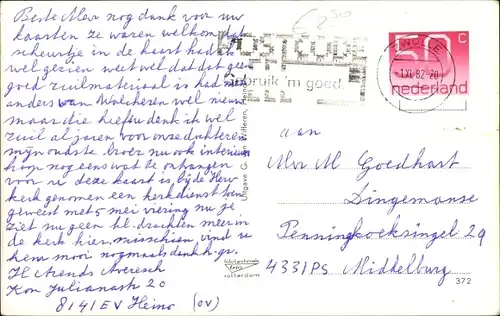 Beste Mevr nog dank voor uw
kaarten ze waren welkom dat
scheurtje in de kaart had ik
wel gezien weet wel dat dat geen
goed ruilmateriaal is had niet
anders van Walcheren wel nieuw
maar die heeft u denk ik wel
ruil al jaren voor onze dochter en
mijn oudste broer nu ook
nog eens wat te ontvangen
voor u deze kaart is bij de Herv
kerk genomen een kerkdienst
geweest met mei viering nu je
ziet nu geen kl. drachten meer in
de kerk hier, misschien vind u
hem mooi nogmaals dank h. gr.
H Arends Averesch
Kon Julianastr 20
8141 EV Heino (OV)
2,50
POSTCODE
gebruik 'm goed.
ZWOLLE
-1.XI.82.20
50 c
nederland
aan
Mevr M Goedhart
Dingemanse
Penningkoeksingel 29
4331 PS Middelburg
rotterdam
372